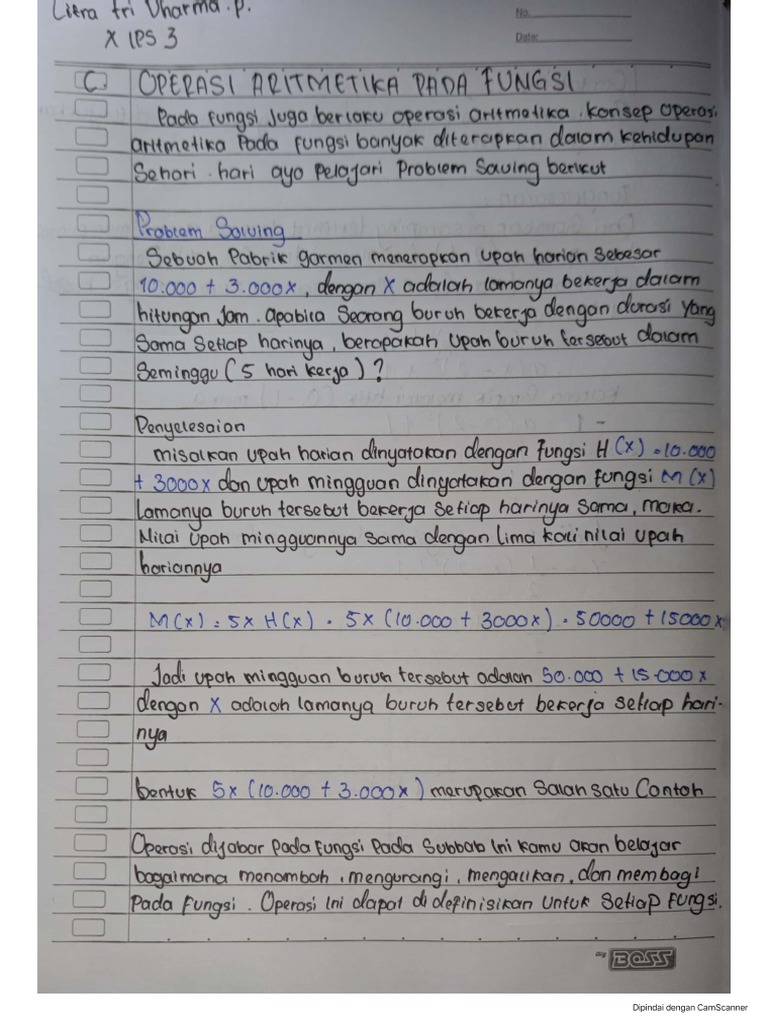 Litra Tri Dharma .P.
X IPS 3
No.
Date:
C. OPERASI ARITMETIKA PADA FUNGSI
Pada fungsi juga berlaku operasi aritmetika. konsep operasi
aritmetika Pada fungsi banyak diterapkan dalam kehidupan
Sehari. hari ayo pelajari Problem Sowing berikut
Problem Solving
Sebuah Pabrik garmen menerapkan upah harian sebesar
10.000 + 3.000x, dengan X adalah lamanya bekerja dalam
hitungan Jam. Apabila Seorang buruh bekerja dengan durasi Yang
Sama Setiap harinya, berapakah Upah buruh tersebut dalam
Seminggu (5 hari kerja)?
Penyelesaian
misalkan upah harian dinyatakan dengan fungsi H(x) = 10.000
+ 3000x dan upah mingguan dinyatakan dengan fungsi M(x)
Lamanya buruh tersebut bekerja Setiap harinya Sama, maka.
Nilai Upah mingguannya Sama dengan lima kali nilai upah
hariannya
M(x) = 5x H(x) = 5x (10.000 + 3000x) = 50000 + 15000x
Jadi upah mingguan buruh tersebut adalah 50.000 + 15.000x
dengan X adalah lamanya buruh tersebut bekerja setiap hari-
nya
bentuk 5x (10.000 + 3.000x) merupakan Salah Satu Contoh
Operasi dijabar pada fungsi Pada Subbab ini kamu akan belajar
bagaimana menambah, mengurangi, mengalikan, dan membagi
Pada fungsi. Operasi ini dapat di definisikan Untuk Setiap fungsi.
my BOSS
Dipindai dengan CamScanner